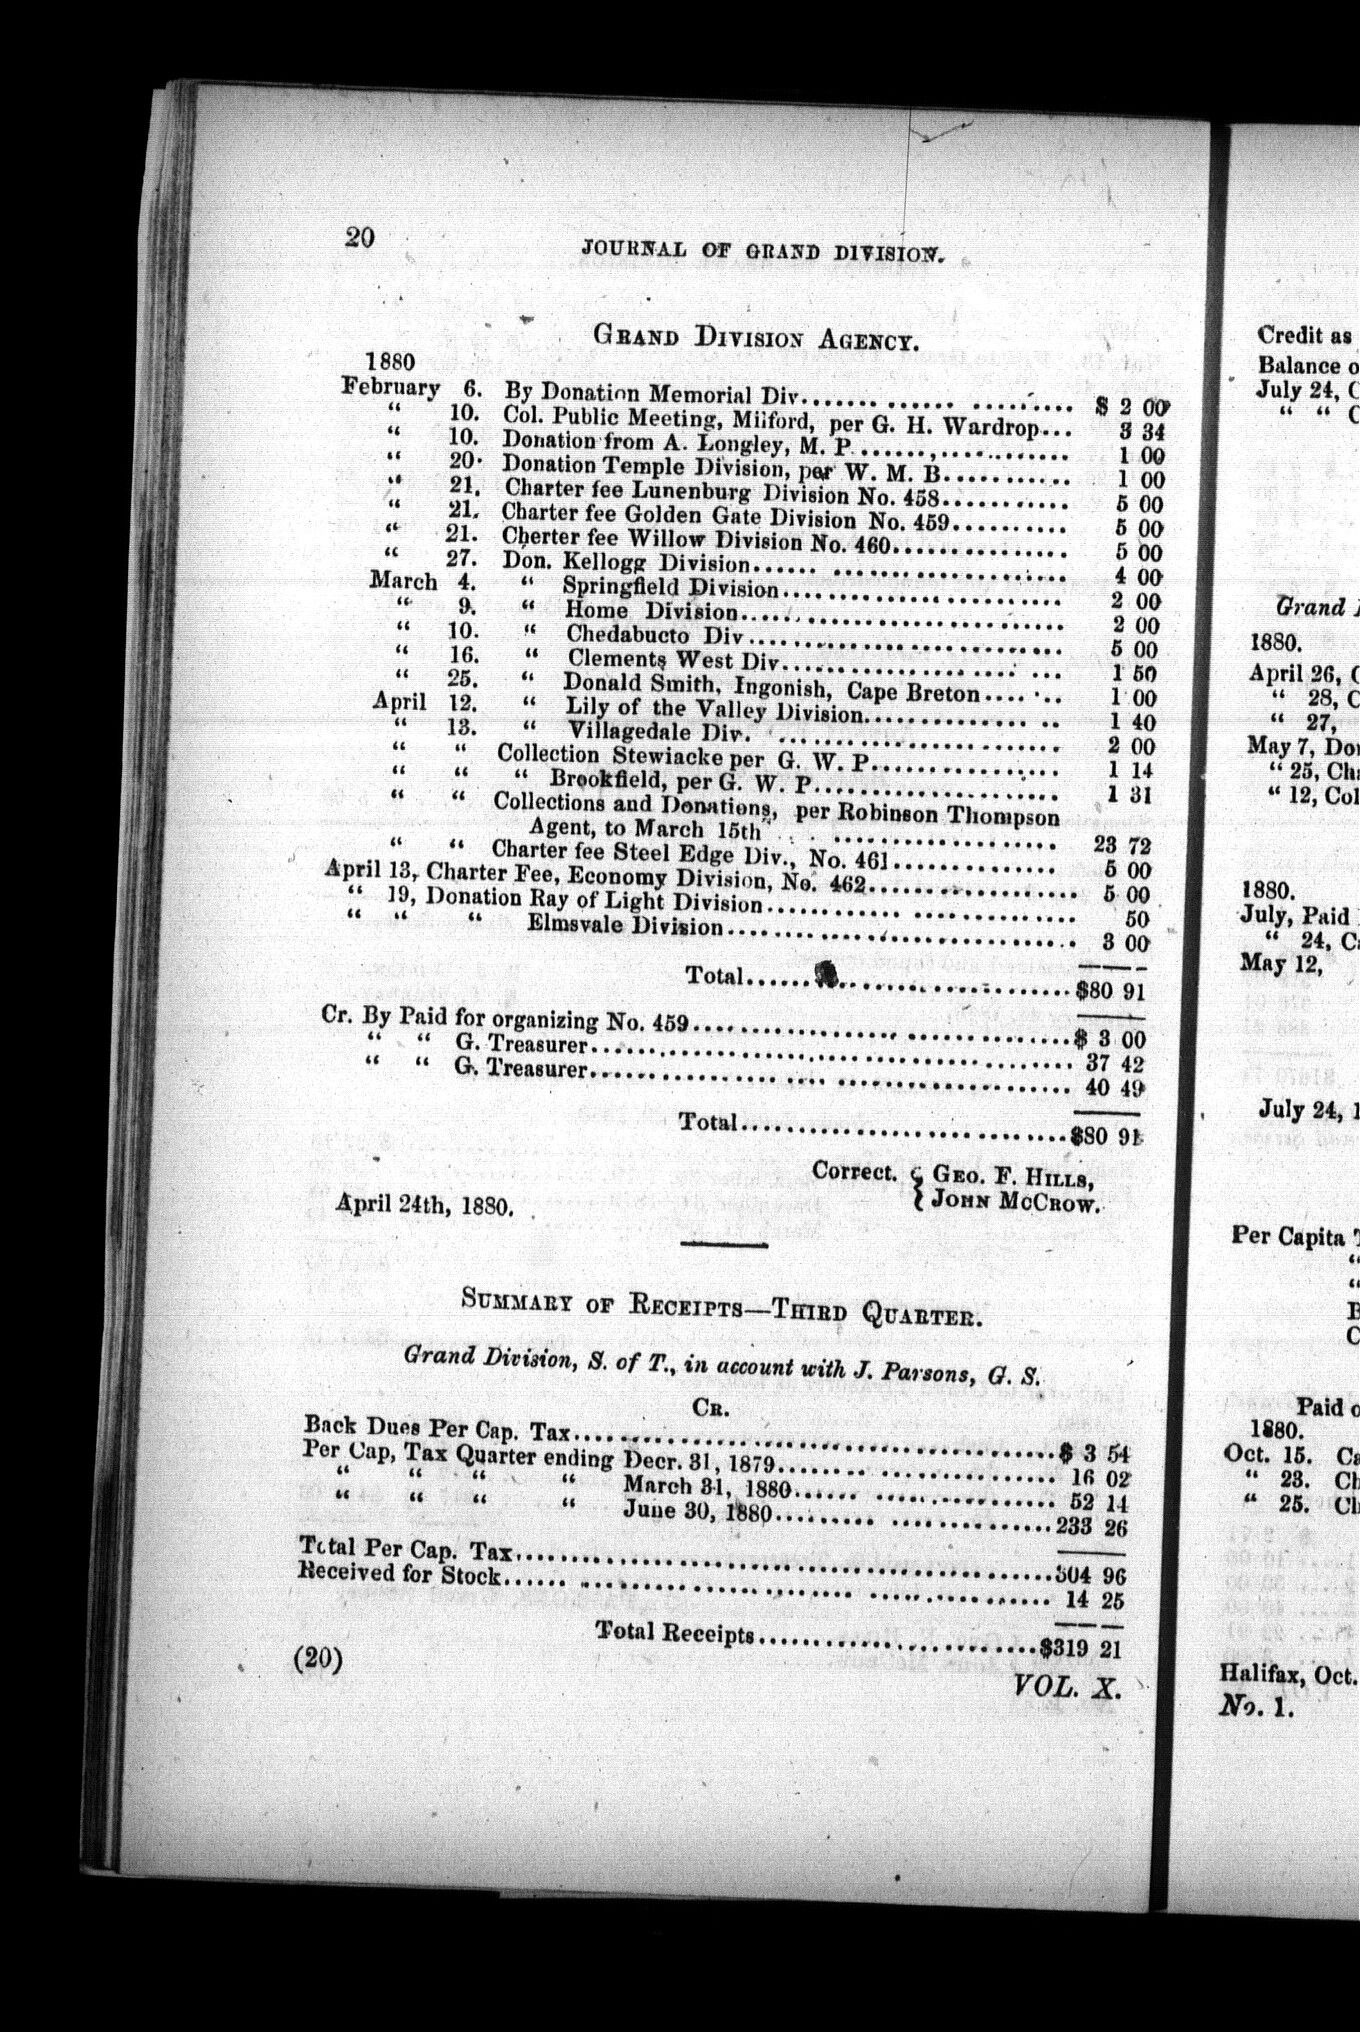 20
JOURNAL OF GRAND DIVISION.
GRAND DIVISION AGENCY.
1880
February 6. By Donation Memorial Div................ $ 2 00
" 10. Col. Public Meeting, Milford, per G. H. Wardrop... 3 34
" 10. Donation from A. Longley, M. P................ 1 00
" 20. Donation Temple Division, per W. M. B........... 1 00
" 21. Charter fee Lunenburg Division No. 458........... 5 00
" 21. Charter fee Golden Gate Division No. 459.......... 5 00
" 21. Cherter fee Willow Division No. 460............... 5 00
" 27. Don. Kellogg Division...................... 4 00
March 4. " Springfield Division...................... 2 00
" 9. " Home Division......................... 2 00
" 10. " Chedabucto Div......................... 5 00
" 16. " Clements West Div..................... 1 50
" 25. " Donald Smith, Ingonish, Cape Breton....... 1 00
April 12. " Lily of the Valley Division............... 1 40
" 13. " Villagedale Div....................... 2 00
" " Collection Stewiacke per G. W. P................ 1 14
" " " Brookfield, per G. W. P.................... 1 31
" " Collections and Donations, per Robinson Thompson
Agent, to March 15th .................... 23 72
" " Charter fee Steel Edge Div., No. 461.............. 5 00
April 13, Charter Fee, Economy Division, No. 462................... 5 00
" 19, Donation Ray of Light Division........................ 50
" " " Elmsvale Division............................ 3 00
Total.............................$80 91
Cr. By Paid for organizing No. 459...............................$ 3 00
" " G. Treasurer....................................... 37 42
" " G. Treasurer....................................... 40 49
Total..............................$80 91
Correct. { GEO. F. HILLS,
JOHN MCCROW.
April 24th, 1880.
SUMMARY OF RECEIPTS—THIRD QUARTER.
Grand Division, S. of T., in account with J. Parsons, G. S.
CR.
Back Dues Per Cap. Tax..........................................$ 3 54
Per Cap, Tax Quarter ending Decr. 31, 1879........................ 16 02
" " " " March 31, 1880...................... 52 14
" " " " June 30, 1880........................233 26
Total Per Cap. Tax..............................................304 96
Received for Stock............................................. 14 25
Total Receipts.........................$319 21
(20)
VOL. X.
Credit as
Balance o
July 24, C
" " C
Grand
1880.
April 26, C
" 28, C
" 27,
May 7, Don
" 25, Cha
" 12, Col
1880.
July, Paid
" 24, Ca
May 12,
July 24, 1
Per Capita T
"
"
B
C
Paid o
1880.
Oct. 15. Ca
" 23. Ch
" 25. Ch
Halifax, Oct.
No. 1.